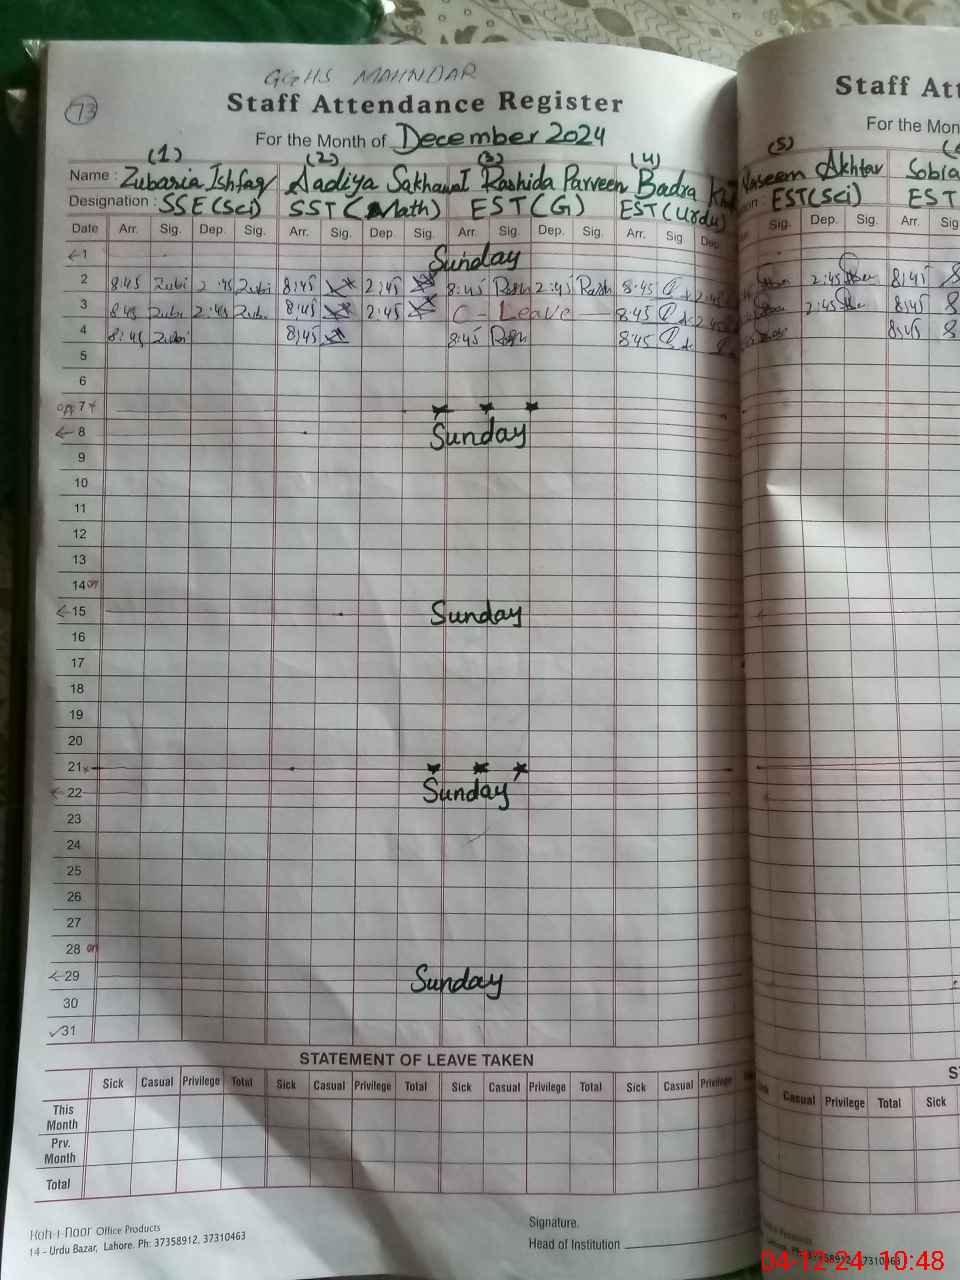 GGHS MAHNDAR
73
Staff Attendance Register
For the Month of December 2024
(1) (2) (3) (4)
Name : Zubaria Ishfaq Aadiya Sakhawat Rashida Parveen Badra
Designation : SSE (Sci) SST (Math) EST (G) EST (Urdu)
Date Arr. Sig. Dep. Sig. Arr. Sig. Dep. Sig. Arr. Sig. Dep. Sig. Arr. Sig. Dep.
1 Sunday
2 8:45 Zubi 2:45 Zubi 8:45 2:45 8:45 Rash 2:45 Rash 8:45 2:45
3 8:45 Zubi 2:45 Zubi 8:45 2:45 C - Leave 8:45 2:45
4 8:45 Zubi 8:45 8:45 Rash 8:45
5
6
off 7
8 Sunday
9
10
11
12
13
14
15 Sunday
16
17
18
19
20
21
22 Sunday
23
24
25
26
27
28
29 Sunday
30
31
STATEMENT OF LEAVE TAKEN
Sick Casual Privilege Total Sick Casual Privilege Total Sick Casual Privilege Total Sick Casual Privilege
This Month
Prv. Month
Total
Koh-i-Noor Office Products
14 - Urdu Bazar, Lahore. Ph: 37358912, 37310463
Signature.
Head of Institution
Staff Att
For the Mon
(5)
Naseem Akhtar Sobia
EST (Sci) EST
Sig. Dep. Sig. Arr. Sig.
2:45 8:45
2:45 8:45
8:45
Casual Privilege Total Sick
37310463
04-12-24 10:48